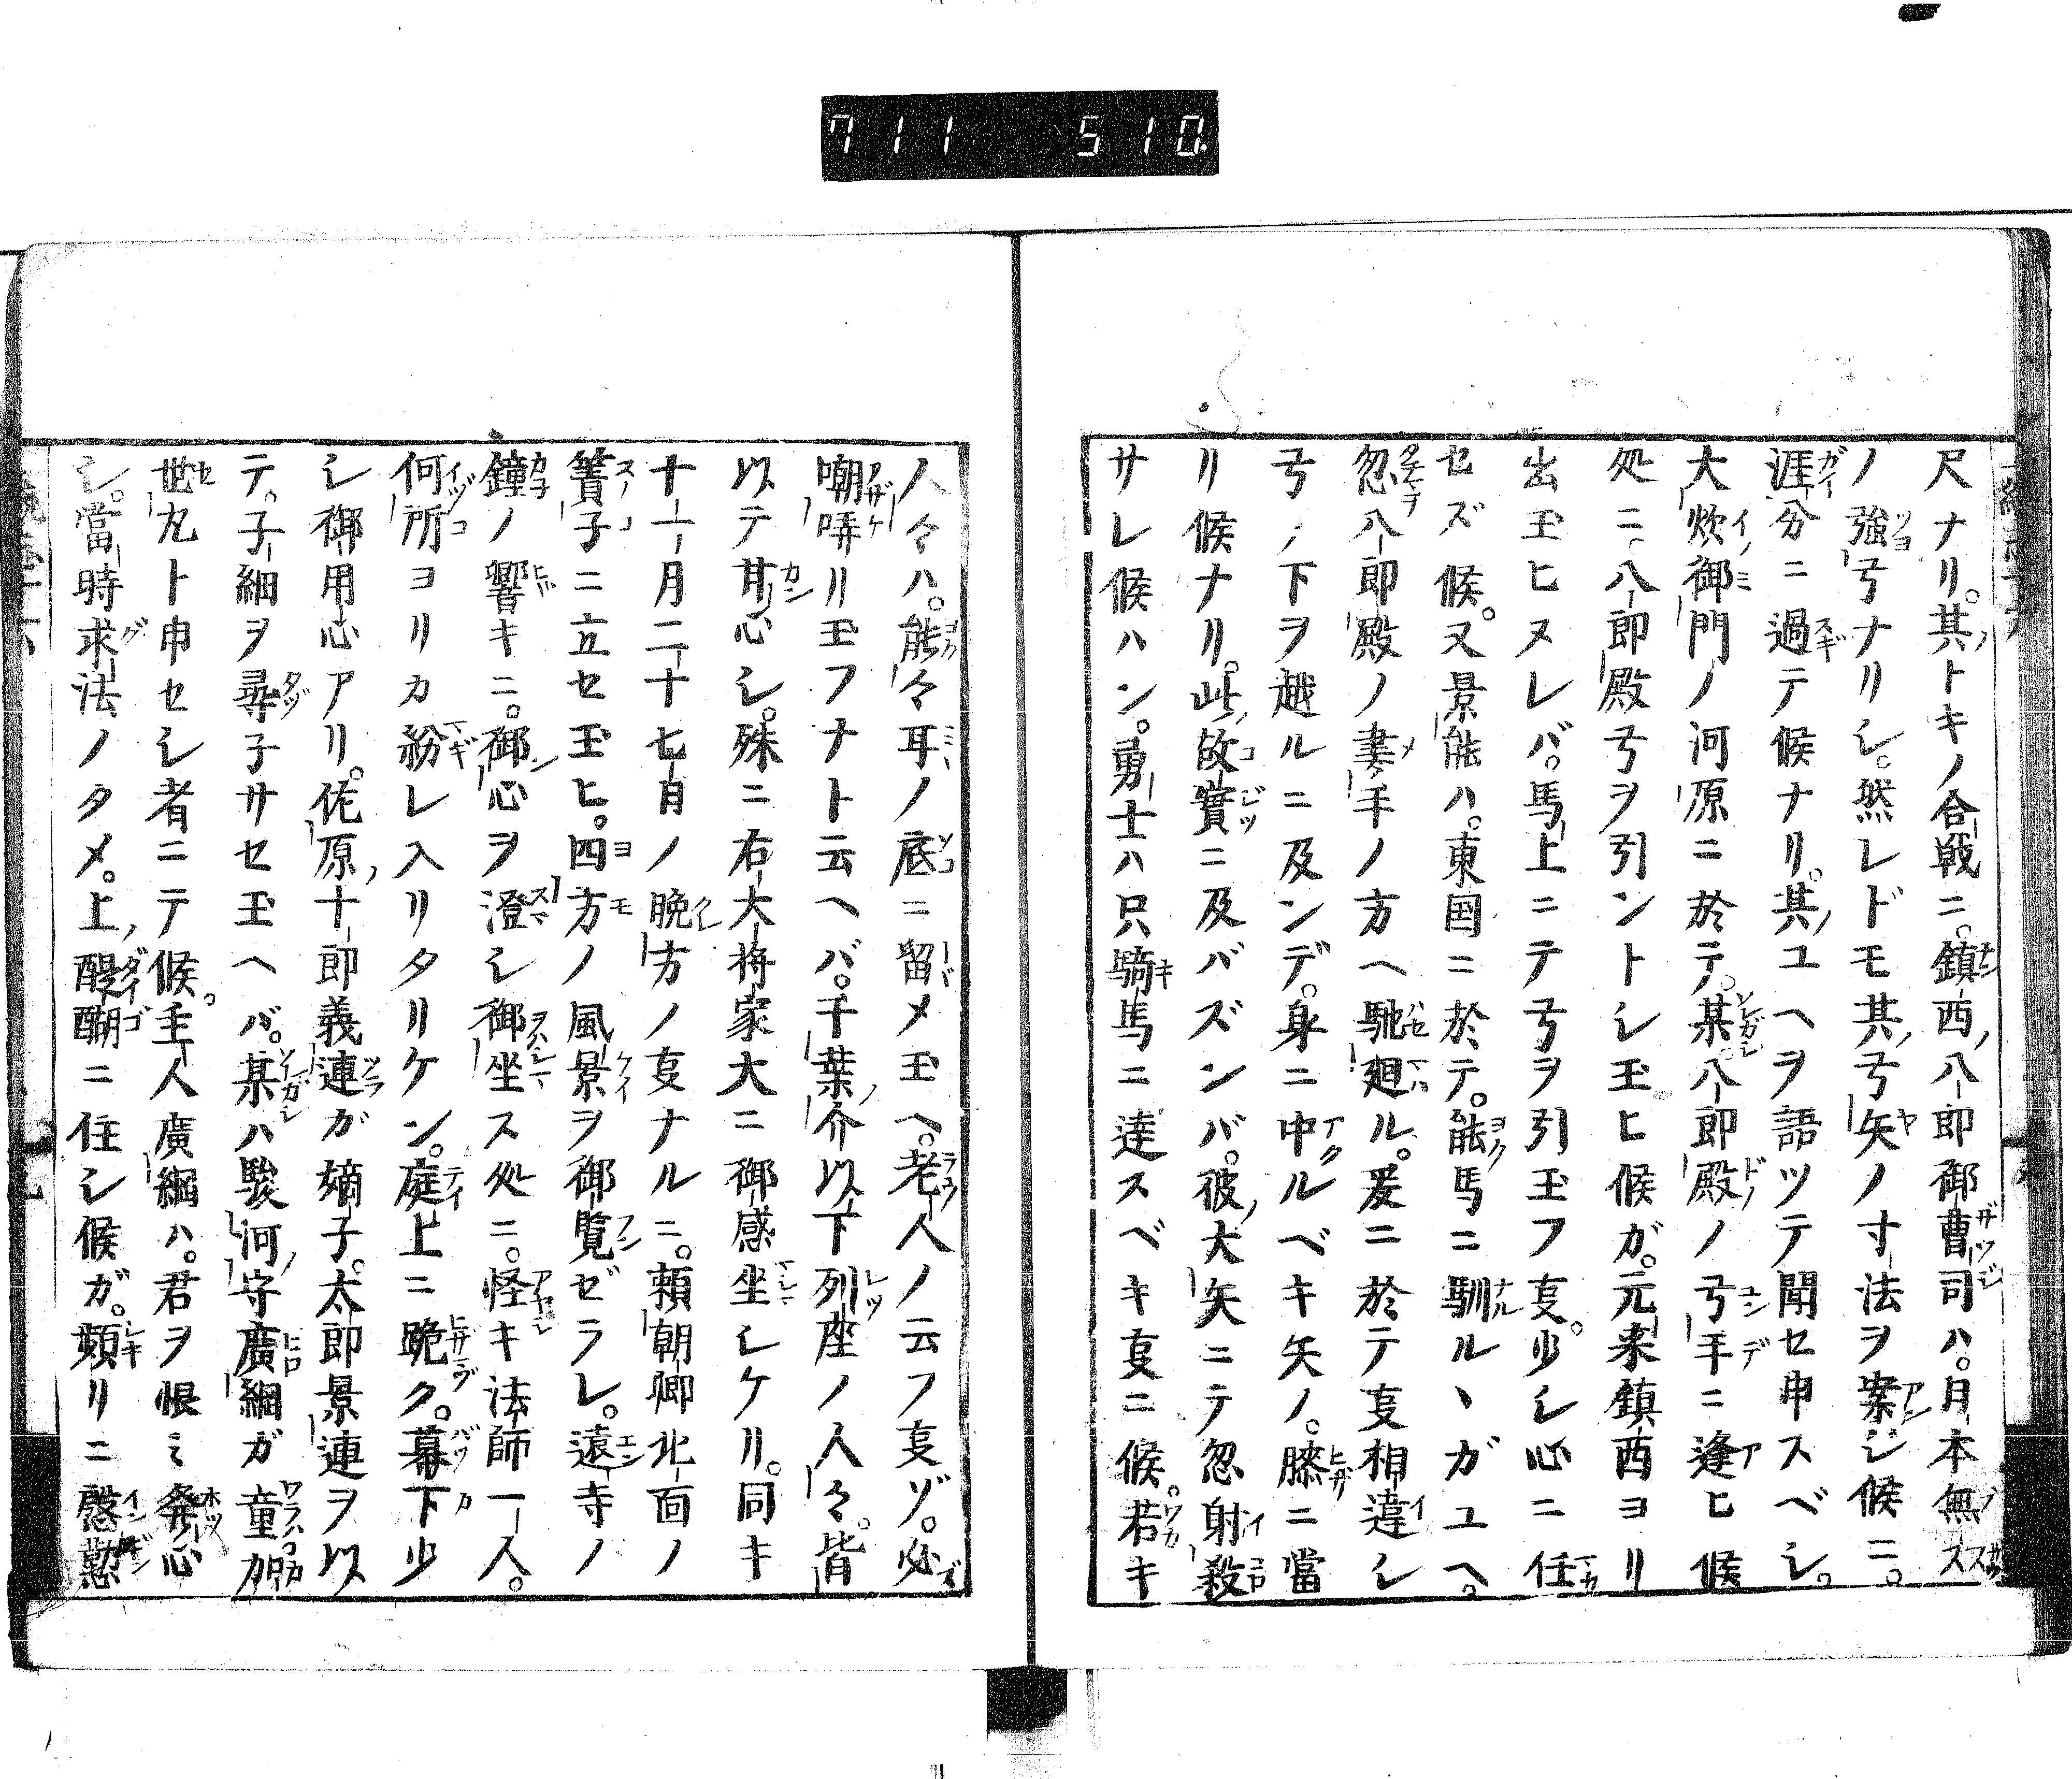 711 510.
尺ナリ。其トキノ合戦ニ。鎮西八郎御曹司ハ。日本無
ノ強弓ナリシ。然レドモ其弓矢ノ寸法ヲ案ジ候ニ。
涯分ニ過テ候ナリ。其ユヘヲ語ツテ聞セ申スベシ。
大炊御門ノ河原ニ於テ。某八郎殿ノ弓手ニ逢ヒ候
処ニ。八郎殿弓ヲ引ントシ玉ヒ候ガ。元来鎮西ヨリ
出玉ヒヌレバ。馬上ニテ弓ヲ引玉フ㕝。少シ心ニ任
セズ候。又景能ハ。東国ニ於テ。能馬ニ馴ルヽガユヘ。
忽八郎殿ノ妻手ノ方ヘ馳廻ル。爰ニ於テ㕝相違シ
弓ノ下ヲ越ルニ及ンデ。身ニ中ルベキ矢ノ。膝ニ當
リ候ナリ。此故實ニ及バズンバ。彼大矢ニテ忽射殺
サレ候ハン。勇士ハ只騎馬ニ達スベキ㕝ニ候。若キ
人々ハ。能々耳ノ底ニ留メ玉ヘ。老人ノ云フ㕝ヅ。必
嘲哢リ玉フナト云ヘバ。千葉介以下列座ノ人々。皆
以テ甘心シ。殊ニ右大将家大ニ御感坐シケリ。同キ
十一月二十七日ノ晩方ノ㕝ナルニ。頼朝卿北面ノ
簀子ニ立セ玉ヒ。四方ノ風景ヲ御覧ゼラレ。遠寺ノ
鐘ノ響キニ。御心ヲ澄シ御坐ス処ニ。怪キ法師一人。
何所ヨリカ紛レ入リタリケン。庭上ニ跪ク。幕下少
シ御用心アリ。佐原十郎義連ガ嫡子。太郎景連ヲ以
テ。子細ヲ尋子サセ玉ヘバ。某ハ駿河守廣綱ガ童加
世丸ト申セシ者ニテ候。主人廣綱ハ。君ヲ恨ミ発心
シ。當時求法ノタメ。上醍醐ニ住シ候ガ。頻リニ慇懃